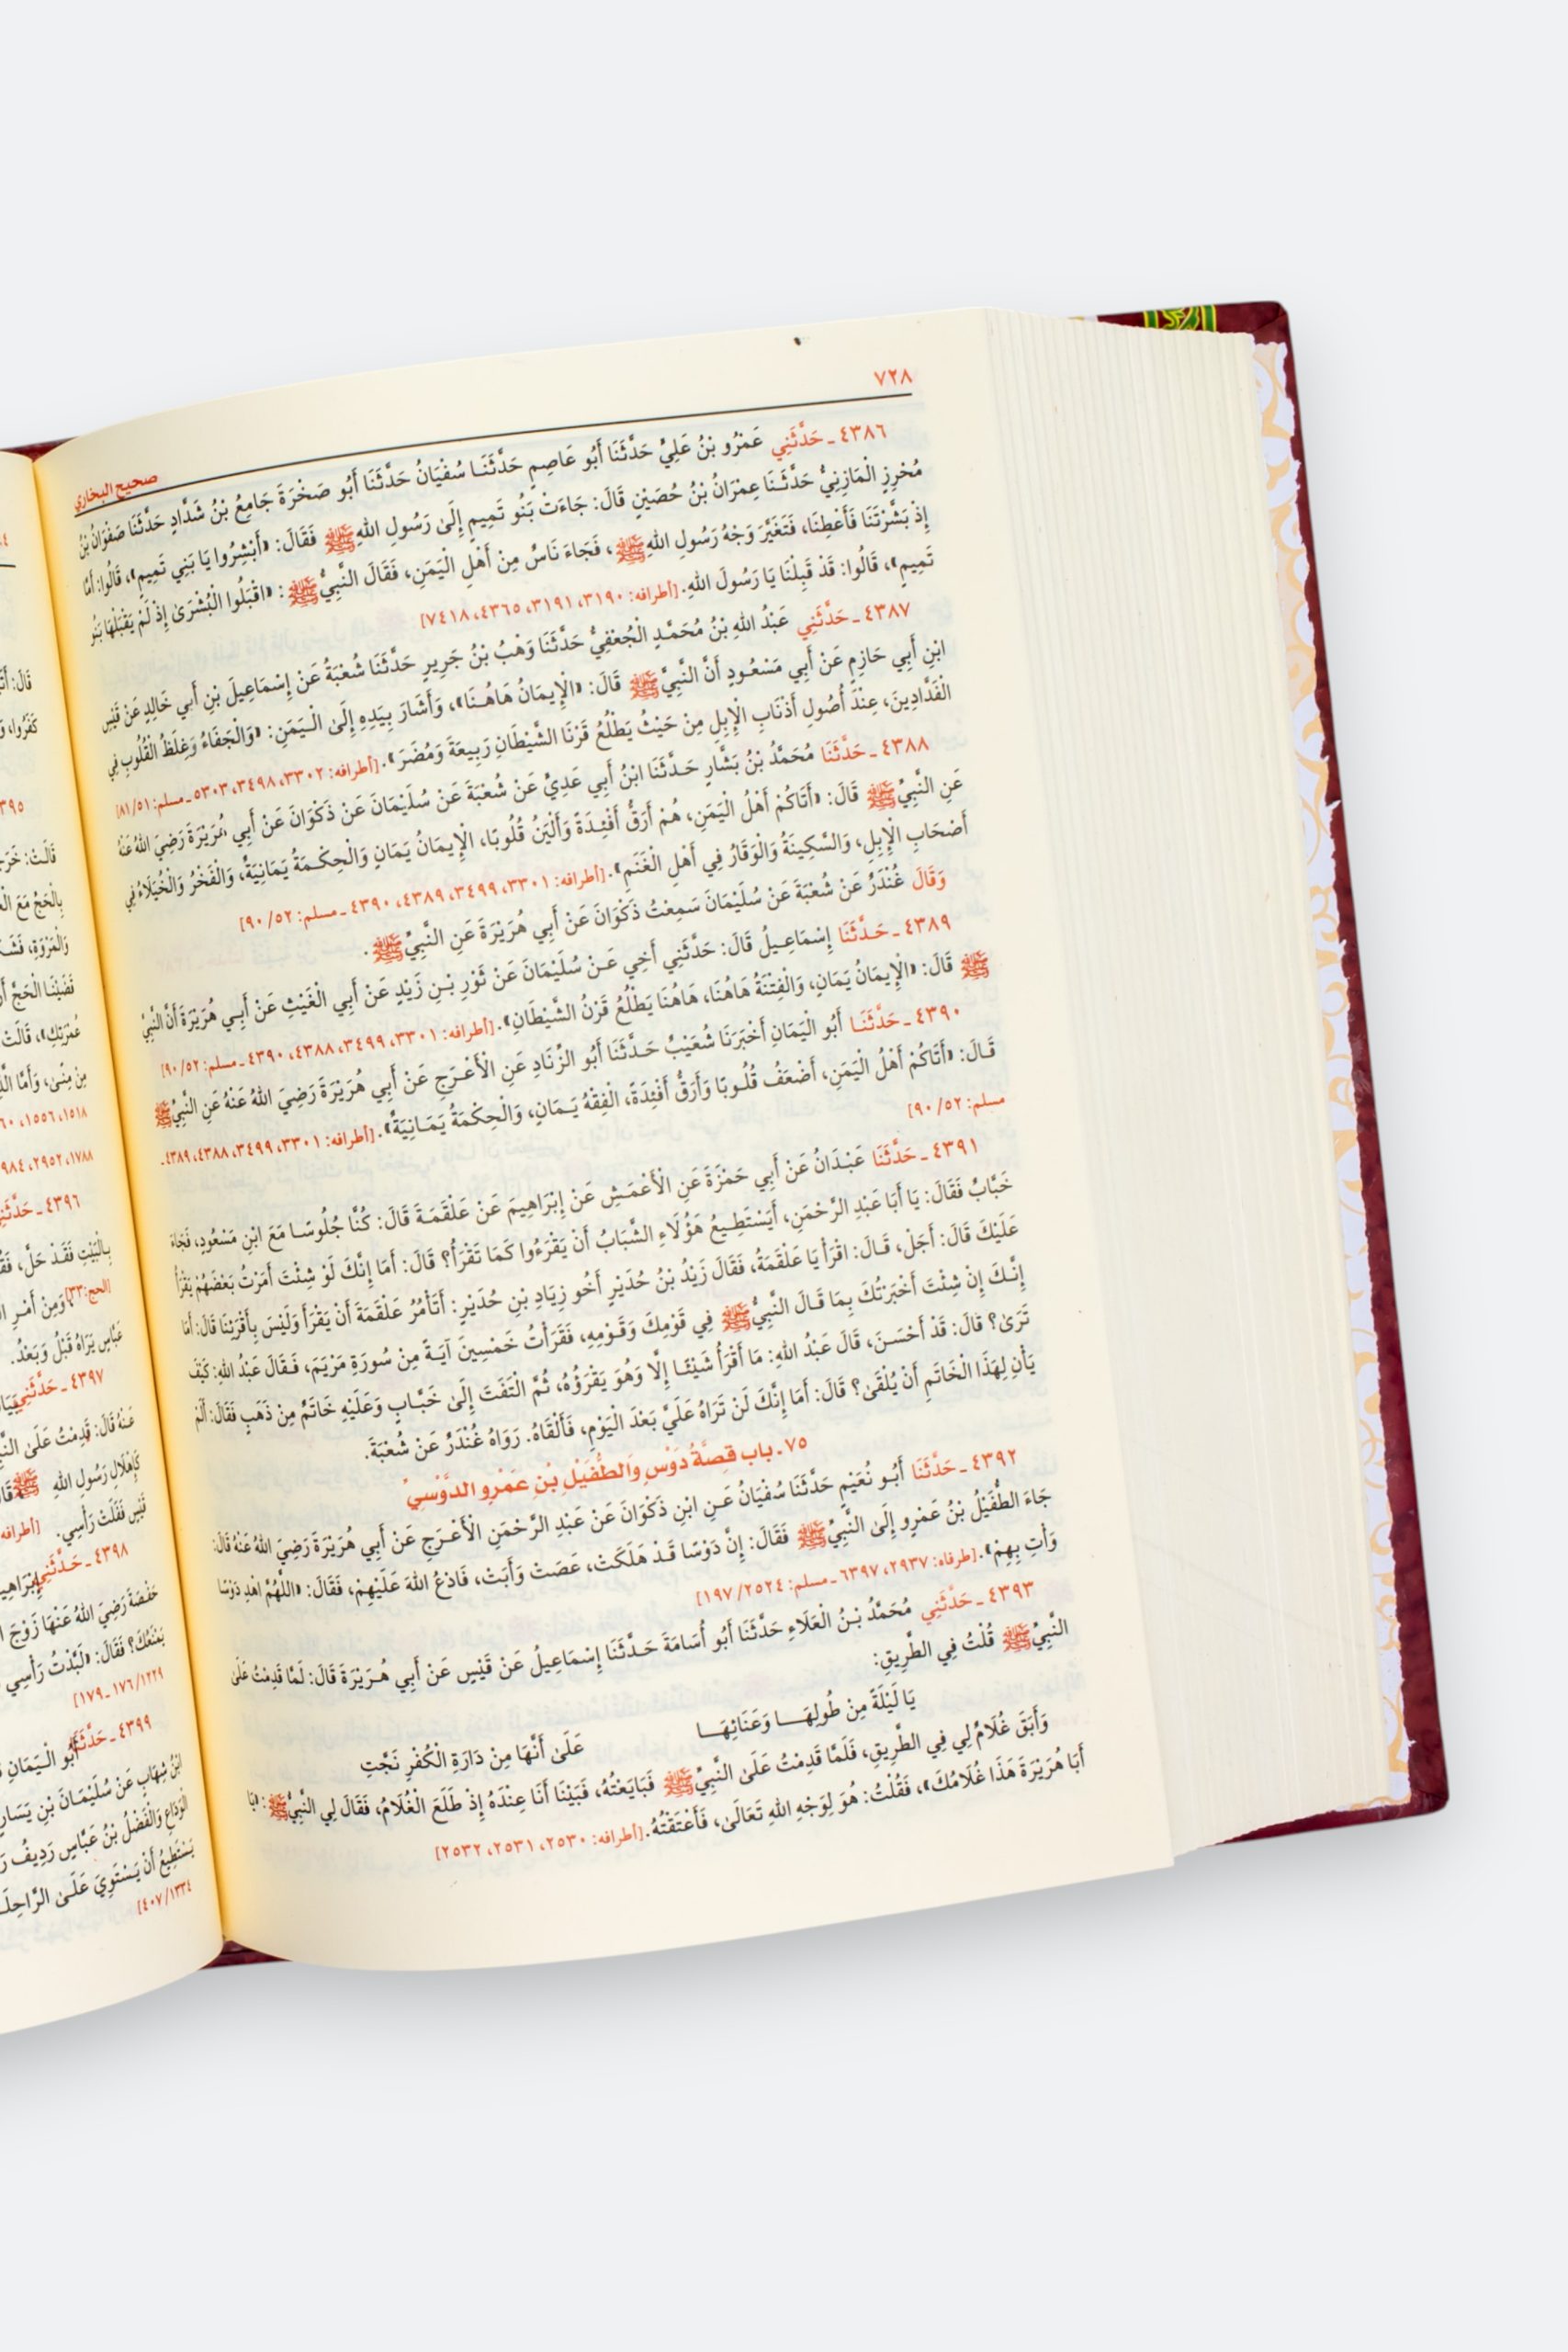 ٧٢٨
صحيح البخاري
٤٣٨٦ ـ حَدَّثَنِي عَمْرُو بْنُ عَلِيٍّ حَدَّثَنَا أَبُو عَاصِمٍ حَدَّثَنَا سُفْيَانُ حَدَّثَنَا أَبُو صَخْرَةَ جَامِعُ بْنُ شَدَّادٍ حَدَّثَنَا صَفْوَانُ بْنُ
مُحْرِزٍ الْمَازِنِيُّ حَدَّثَنَا عِمْرَانُ بْنُ حُصَيْنٍ قَالَ: جَاءَتْ بَنُو تَمِيمٍ إِلَىٰ رَسُولِ اللهِ ﷺ فَقَالَ: «أَبْشِرُوا يَا بَنِي تَمِيمٍ»، قَالُوا: أَمَّا
إِذْ بَشَّرْتَنَا فَأَعْطِنَا، فَتَغَيَّرَ وَجْهُ رَسُولِ اللهِ ﷺ، فَجَاءَ نَاسٌ مِنْ أَهْلِ الْيَمَنِ، فَقَالَ النَّبِيُّ ﷺ: «اقْبَلُوا الْبُشْرَىٰ إِذْ لَمْ يَقْبَلْهَا بَنُو
تَمِيمٍ»، قَالُوا: قَدْ قَبِلْنَا يَا رَسُولَ اللهِ. [أطرافه: ٣١٩٠، ٣١٩١، ٤٣٦٥، ٧٤١٨]
٤٣٨٧ ـ حَدَّثَنِي عَبْدُ اللهِ بْنُ مُحَمَّدٍ الْجُعْفِيُّ حَدَّثَنَا وَهْبُ بْنُ جَرِيرٍ حَدَّثَنَا شُعْبَةُ عَنْ إِسْمَاعِيلَ بْنِ أَبِي خَالِدٍ عَنْ قَيْسِ
ابْنِ أَبِي حَازِمٍ عَنْ أَبِي مَسْعُودٍ أَنَّ النَّبِيَّ ﷺ قَالَ: «الْإِيمَانُ هَاهُنَا»، وَأَشَارَ بِيَدِهِ إِلَىٰ الْيَمَنِ: «وَالْجَفَاءُ وَغِلَظُ الْقُلُوبِ فِي
الْفَدَّادِينَ، عِنْدَ أُصُولِ أَذْنَابِ الْإِبِلِ مِنْ حَيْثُ يَطْلُعُ قَرْنَا الشَّيْطَانِ رَبِيعَةَ وَمُضَرَ». [أطرافه: ٣٣٠٢، ٣٤٩٨، ٥٣٠٣ ـ مسلم: ٨١/٥١]
٤٣٨٨ ـ حَدَّثَنَا مُحَمَّدُ بْنُ بَشَّارٍ حَدَّثَنَا ابْنُ أَبِي عَدِيٍّ عَنْ شُعْبَةَ عَنْ سُلَيْمَانَ عَنْ ذَكْوَانَ عَنْ أَبِي هُرَيْرَةَ رَضِيَ اللهُ عَنْهُ
عَنِ النَّبِيِّ ﷺ قَالَ: «أَتَاكُمْ أَهْلُ الْيَمَنِ، هُمْ أَرَقُّ أَفْئِدَةً وَأَلْيَنُ قُلُوبًا، الْإِيمَانُ يَمَانٍ وَالْحِكْمَةُ يَمَانِيَةٌ، وَالْفَخْرُ وَالْخُيَلَاءُ فِي
أَصْحَابِ الْإِبِلِ، وَالسَّكِينَةُ وَالْوَقَارُ فِي أَهْلِ الْغَنَمِ». [أطرافه: ٣٣٠١، ٣٤٩٩، ٤٣٨٩، ٤٣٩٠ ـ مسلم: ٩٠/٥٢]
وَقَالَ غُنْدَرٌ عَنْ شُعْبَةَ عَنْ سُلَيْمَانَ سَمِعْتُ ذَكْوَانَ عَنْ أَبِي هُرَيْرَةَ عَنِ النَّبِيِّ ﷺ.
٤٣٨٩ ـ حَدَّثَنَا إِسْمَاعِيلُ قَالَ: حَدَّثَنِي أَخِي عَنْ سُلَيْمَانَ عَنْ ثَوْرِ بْنِ زَيْدٍ عَنْ أَبِي الْغَيْثِ عَنْ أَبِي هُرَيْرَةَ أَنَّ النَّبِيَّ
ﷺ قَالَ: «الْإِيمَانُ يَمَانٍ، وَالْفِتْنَةُ هَاهُنَا، هَاهُنَا يَطْلُعُ قَرْنُ الشَّيْطَانِ». [أطرافه: ٣٣٠١، ٣٤٩٩، ٤٣٨٨، ٤٣٩٠ ـ مسلم: ٩٠/٥٢]
٤٣٩٠ ـ حَدَّثَنَا أَبُو الْيَمَانِ أَخْبَرَنَا شُعَيْبٌ حَدَّثَنَا أَبُو الزِّنَادِ عَنِ الْأَعْرَجِ عَنْ أَبِي هُرَيْرَةَ رَضِيَ اللهُ عَنْهُ عَنِ النَّبِيِّ ﷺ
قَالَ: «أَتَاكُمْ أَهْلُ الْيَمَنِ، أَضْعَفُ قُلُوبًا وَأَرَقُّ أَفْئِدَةً، الْفِقْهُ يَمَانٍ، وَالْحِكْمَةُ يَمَانِيَةٌ». [أطرافه: ٣٣٠١، ٣٤٩٩، ٤٣٨٨، ٤٣٨٩ ـ
مسلم: ٩٠/٥٢]
٤٣٩١ ـ حَدَّثَنَا عَبْدَانُ عَنْ أَبِي حَمْزَةَ عَنِ الْأَعْمَشِ عَنْ إِبْرَاهِيمَ عَنْ عَلْقَمَةَ قَالَ: كُنَّا جُلُوسًا مَعَ ابْنِ مَسْعُودٍ، فَجَاءَ
خَبَّابٌ فَقَالَ: يَا أَبَا عَبْدِ الرَّحْمَنِ، أَيَسْتَطِيعُ هَؤُلَاءِ الشَّبَابُ أَنْ يَقْرَءُوا كَمَا تَقْرَأُ؟ قَالَ: أَمَا إِنَّكَ لَوْ شِئْتَ أَمَرْتُ بَعْضَهُمْ يَقْرَأُ
عَلَيْكَ قَالَ: أَجَلْ، قَالَ: اقْرَأْ يَا عَلْقَمَةُ، فَقَالَ زَيْدُ بْنُ حُدَيْرٍ أَخُو زِيَادِ بْنِ حُدَيْرٍ: أَتَأْمُرُ عَلْقَمَةَ أَنْ يَقْرَأَ وَلَيْسَ بِأَقْرَئِنَا قَالَ: أَمَا
إِنَّكَ إِنْ شِئْتَ أَخْبَرْتُكَ بِمَا قَالَ النَّبِيُّ ﷺ فِي قَوْمِكَ وَقَوْمِهِ، فَقَرَأْتُ خَمْسِينَ آيَةً مِنْ سُورَةِ مَرْيَمَ، فَقَالَ عَبْدُ اللهِ: كَيْفَ
تَرَىٰ؟ قَالَ: قَدْ أَحْسَنَ، قَالَ عَبْدُ اللهِ: مَا أَقْرَأُ شَيْئًا إِلَّا وَهُوَ يَقْرَؤُهُ، ثُمَّ الْتَفَتَ إِلَىٰ خَبَّابٍ وَعَلَيْهِ خَاتَمٌ مِنْ ذَهَبٍ فَقَالَ: أَلَمْ
يَأْنِ لِهَذَا الْخَاتَمِ أَنْ يُلْقَىٰ؟ قَالَ: أَمَا إِنَّكَ لَنْ تَرَاهُ عَلَيَّ بَعْدَ الْيَوْمِ، فَأَلْقَاهُ. رَوَاهُ غُنْدَرٌ عَنْ شُعْبَةَ.
٧٥ ـ باب قِصَّةُ دَوْسٍ وَالطُّفَيْلِ بْنِ عَمْرٍو الدَّوْسِيِّ
٤٣٩٢ ـ حَدَّثَنَا أَبُو نُعَيْمٍ حَدَّثَنَا سُفْيَانُ عَنِ ابْنِ ذَكْوَانَ عَنْ عَبْدِ الرَّحْمَنِ الْأَعْرَجِ عَنْ أَبِي هُرَيْرَةَ رَضِيَ اللهُ عَنْهُ قَالَ:
جَاءَ الطُّفَيْلُ بْنُ عَمْرٍو إِلَىٰ النَّبِيِّ ﷺ فَقَالَ: إِنَّ دَوْسًا قَدْ هَلَكَتْ، عَصَتْ وَأَبَتْ، فَادْعُ اللهَ عَلَيْهِمْ، فَقَالَ: «اللَّهُمَّ اهْدِ دَوْسًا
وَأْتِ بِهِمْ». [طرفاه: ٢٩٣٧، ٦٣٩٧ ـ مسلم: ١٩٧/٢٥٢٤]
٤٣٩٣ ـ حَدَّثَنِي مُحَمَّدُ بْنُ الْعَلَاءِ حَدَّثَنَا أَبُو أُسَامَةَ حَدَّثَنَا إِسْمَاعِيلُ عَنْ قَيْسٍ عَنْ أَبِي هُرَيْرَةَ قَالَ: لَمَّا قَدِمْتُ عَلَىٰ
النَّبِيِّ ﷺ قُلْتُ فِي الطَّرِيقِ:
يَا لَيْلَةً مِنْ طُولِهَا وَعَنَائِهَا عَلَىٰ أَنَّهَا مِنْ دَارَةِ الْكُفْرِ نَجَّتِ
وَأَبَقَ غُلَامٌ لِي فِي الطَّرِيقِ، فَلَمَّا قَدِمْتُ عَلَىٰ النَّبِيِّ ﷺ فَبَايَعْتُهُ، فَبَيْنَا أَنَا عِنْدَهُ إِذْ طَلَعَ الْغُلَامُ، فَقَالَ لِي النَّبِيُّ ﷺ: «يَا
أَبَا هُرَيْرَةَ هَذَا غُلَامُكَ»، فَقُلْتُ: هُوَ لِوَجْهِ اللهِ تَعَالَىٰ، فَأَعْتَقْتُهُ. [أطرافه: ٢٥٣٠، ٢٥٣١، ٢٥٣٢]
كَفَرُوا،
قَالَتْ:
وَالْمَرْوَةِ،
عُمْرَتِكِ»، قَالَتْ
مِنْ مِنًىٰ، وَأَمَّا
١٥١٨، ١٥٥٦،
١٧٨٨، ٢٩٥٢،
٤٣٩٦ ـ
بِالْبَيْتِ فَقَدْ حَلَّ،
[الحج: ٣٣]، وَمِنْ أَمْرِ
عَبَّاسٍ يَرَاهُ قَبْلُ وَبَعْدُ.
٤٣٩٧ ـ حَدَّثَنِي
عَنْهُ قَالَ: قَدِمْتُ عَلَىٰ
كَإِهْلَالِ رَسُولِ اللهِ ﷺ
قَيْسٍ فَفَلَتْ رَأْسِي.
٤٣٩٨ ـ حَدَّثَنِي
حَفْصَةَ رَضِيَ اللهُ عَنْهَا زَوْجَ
يَمْنَعُكَ؟ فَقَالَ: «لَبَّدْتُ رَأْسِي
١٧٦/١٢٢٩ ـ ١٧٩]
٤٣٩٩ ـ حَدَّثَنَا أَبُو الْيَمَانِ
ابْنُ شِهَابٍ عَنْ سُلَيْمَانَ بْنِ يَسَارٍ
الْوَدَاعِ وَالْفَضْلُ بْنُ عَبَّاسٍ رَدِيفُ
يَسْتَطِيعُ أَنْ يَسْتَوِيَ عَلَىٰ
٤٠٧/١٣٣٤]